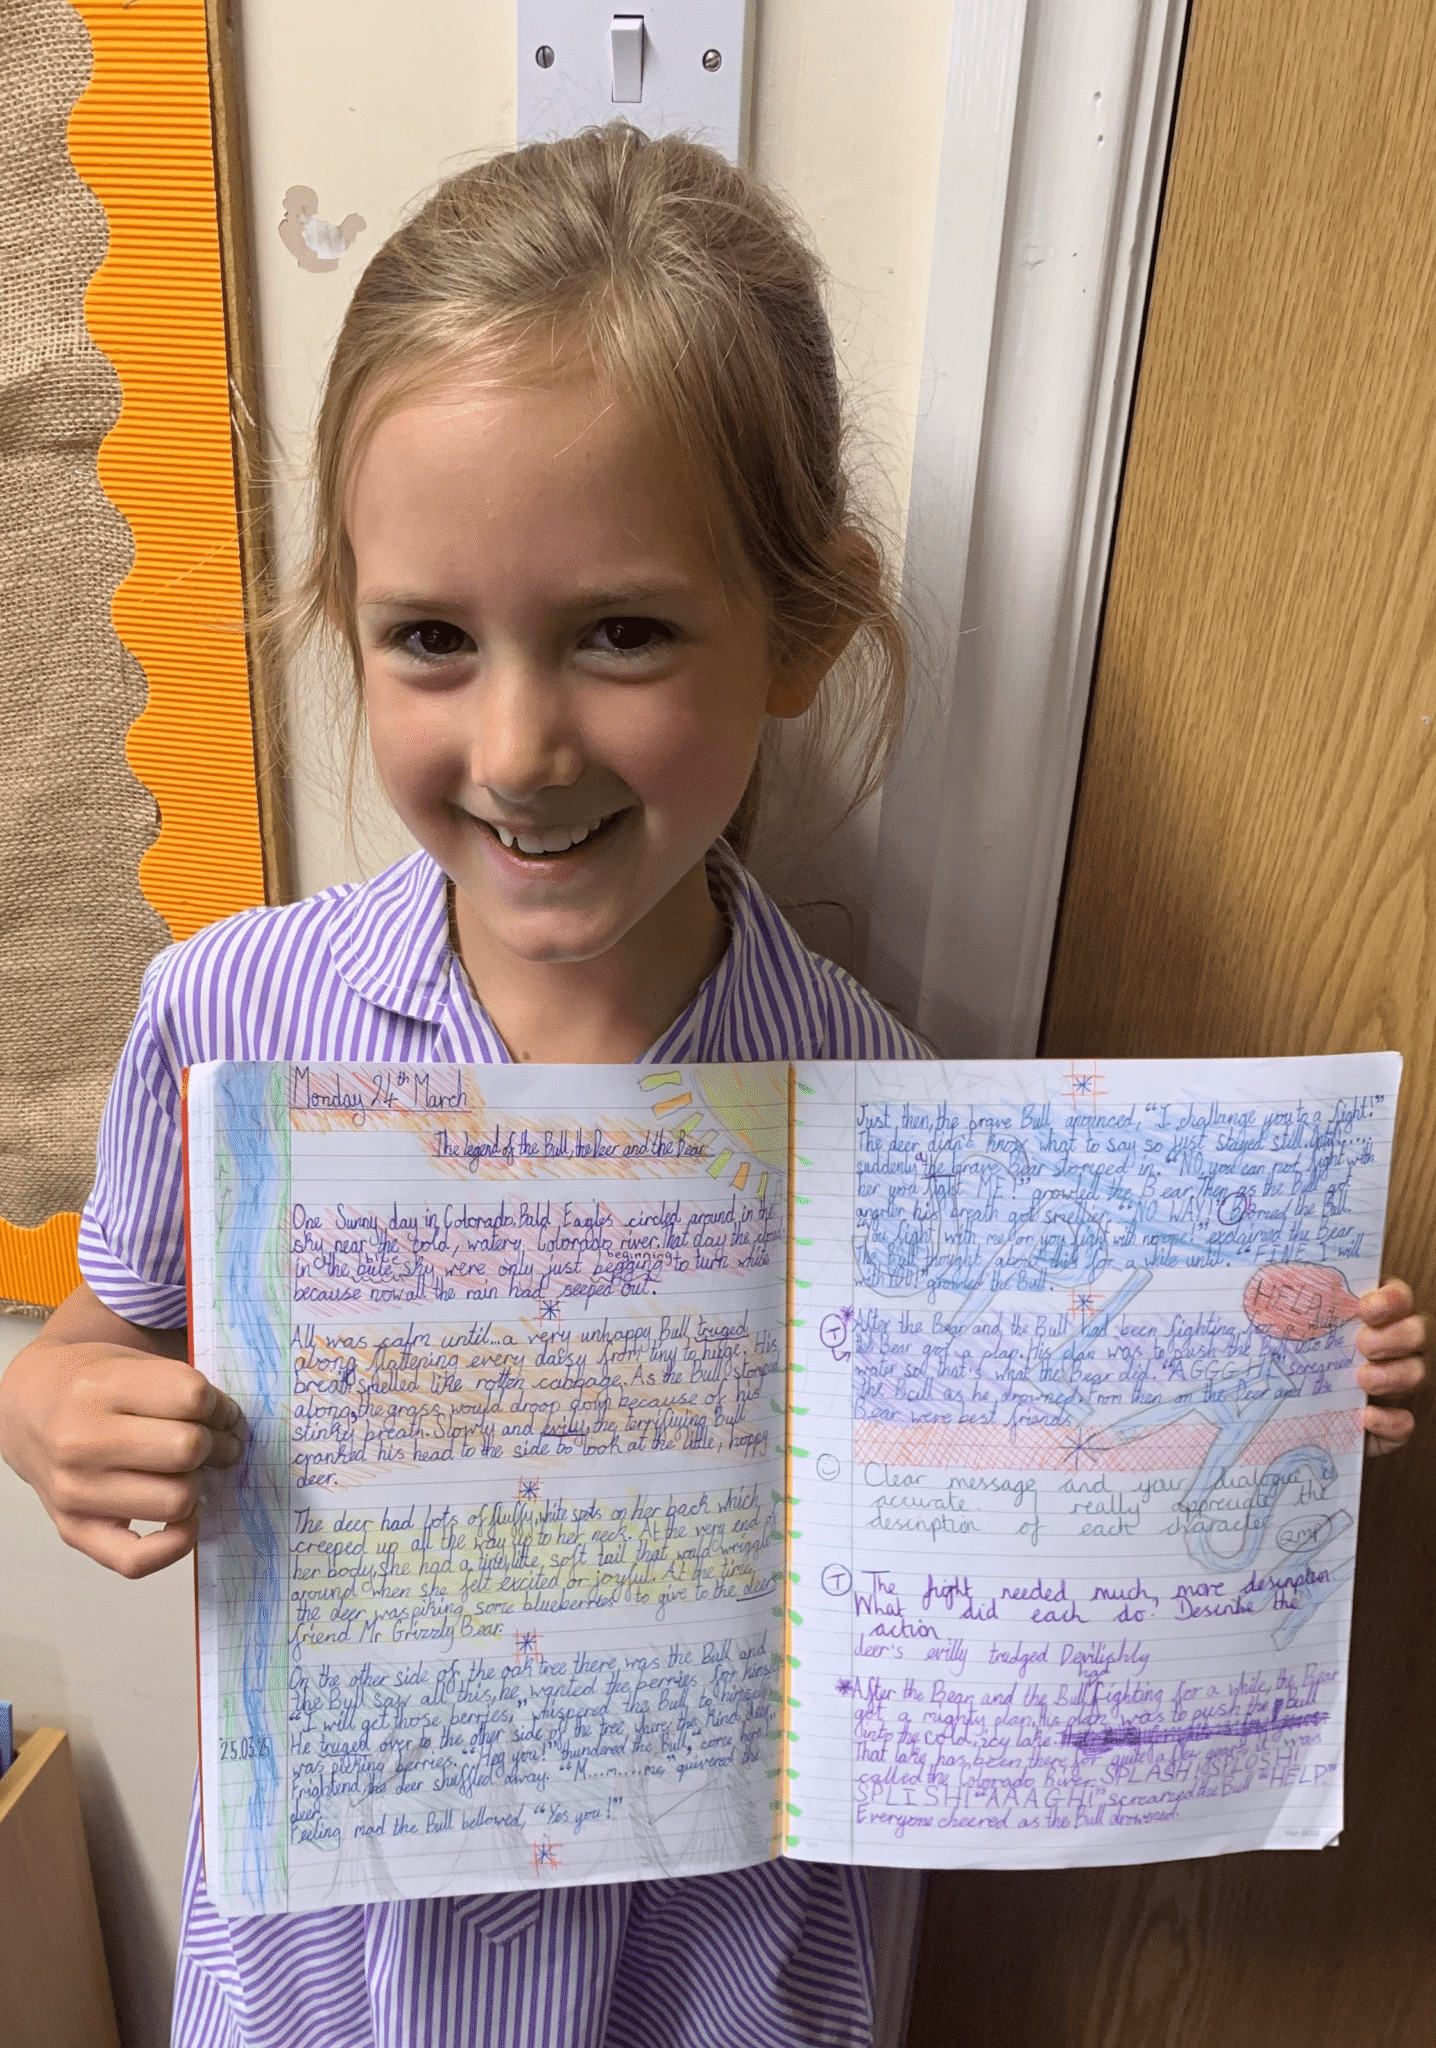 Monday 24th March
The legend of the Bull, the Deer and the Bear
One Sunny day in Colorado, Bald Eagles circled around in the
sky near the cold, watery Colorado river. That day the clouds
blue beginning
in the blue sky were only just begging to turn white
because now all the rain had seeped out.
All was calm until... a very unhappy Bull truged
along flattening every daisy from tiny to huge. His
breath smelled like rotten cabbage. As the Bull stomped
along, the grass would droop down because of his
stinky breath. Slowly and evily, the terrifiying Bull
cranked his head to the side to look at the little, happy
deer.
The deer had lots of fluffy, white spots on her back which
creeped up all the way up to her neck. At the very end of
her body, she had a tiny little soft tail that would wriggle
around when she felt excited or joyful. At the time,
the deer was piking some blueberries to give to the deers
friend Mr Grizzly Bear.
On the other side of the oak tree there was the Bull and
the Bull saw all this, he wanted the berries for himself
"I will get those berries," whispered the Bull to himself.
25.03.25
He truged over to the other side of the tree where the kind deer
was picking berries. "Hey you!" thundered the Bull, "come here!"
Frightend, the deer shuffled away. "M....m....me," quivered the
deer.
Feeling mad the Bull bellowed, "Yes you!"
Just then, the brave Bull anounced, "I challange you to a fight!"
The deer didn't know what to say so just stayed still. Until.....
suddenly a brave Bear stomped in. "NO, you can not fight with
her you fight ME!" growled the Bear. Then as the Bull got
angrier his breath got smellier. "NO WAY!" Boomed the Bull.
"You fight with me or you fight with no one!" explained the Bear.
The Bull thought about this for a while until. "FINE I will
with YOU!" growled the Bull.
HELP
*After the Bear and the Bull had been fighting for a while
T
the Bear got a plan. His plan was to push the Bull into the
water so that's what the Bear did. "AGGGH!" screamed
the Bull as he drowned. From then on the Deer and the
Bear were best friends.
Clear message and your dialogue is
accurate. I really appreciate the
description of each character.
T The fight needed much more description.
What did each do? Describe the
action
deer's evilly trudged Devilishly
had
*After the Bear and the Bull fighting for a while, the Bear
got a mighty plan, his plan was to push the bull
into the cold, icy lake.
That lake has been there for quite a few years it was
called the Colorado River. SPLASH! SPLOSH!
SPLISH! "AAAGH!", screamed the Bull "HELP"
Everyone cheered as the Bull drowned.